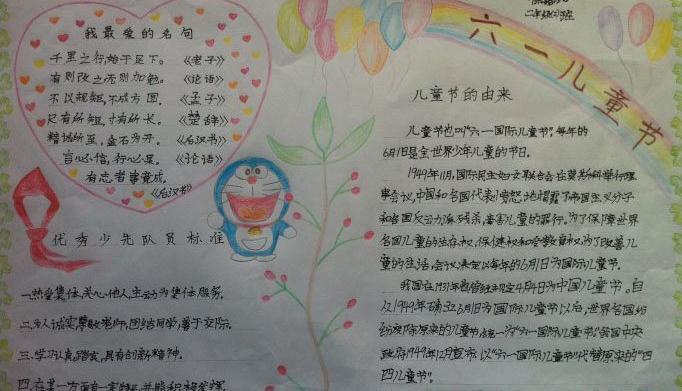 二年级(3)班
六一儿童节
我最爱的名句
千里之行,始于足下。《老子》
有则改之,无则加勉。《论语》
不以规矩,不成方圆。《孟子》
尺有所短,寸有所长。《楚辞》
精诚所至,金石为开。《后汉书》
言必信,行必果。《论语》
有志者事竟成。
《后汉书》
优秀少先队员标准
一.热爱集体,关心他人,主动为集体服务。
二.为人诚实,尊敬老师,团结同学,善于交际。
三.学习认真,踏实,具有创新精神。
四.在某一方面有一定特长,并能积极发挥
儿童节的由来
儿童节也叫“六一国际儿童节”,每年的
6月1日是全世界少年儿童的节日。
1949年11月,国际民主妇女联合会在莫斯科举行理
事会议,中国和各国代表愤怒地揭露了帝国主义分子
和各国反动派残杀、毒害儿童的罪行。为了保障世界
各国儿童的生存权、保健权和受教育权,为了改善儿
童的生活,会议决定以每年的6月1日为国际儿童节。
我国在1931年曾规定4月4日为中国儿童节。自
从1949年确立6月1日为国际儿童节以后,世界各国纷
纷废除原来的儿童节,统一为“六一国际儿童节”我国中央
政府1949年12月宣布,以“六一国际儿童节”代替原来的“四
四儿童节”。